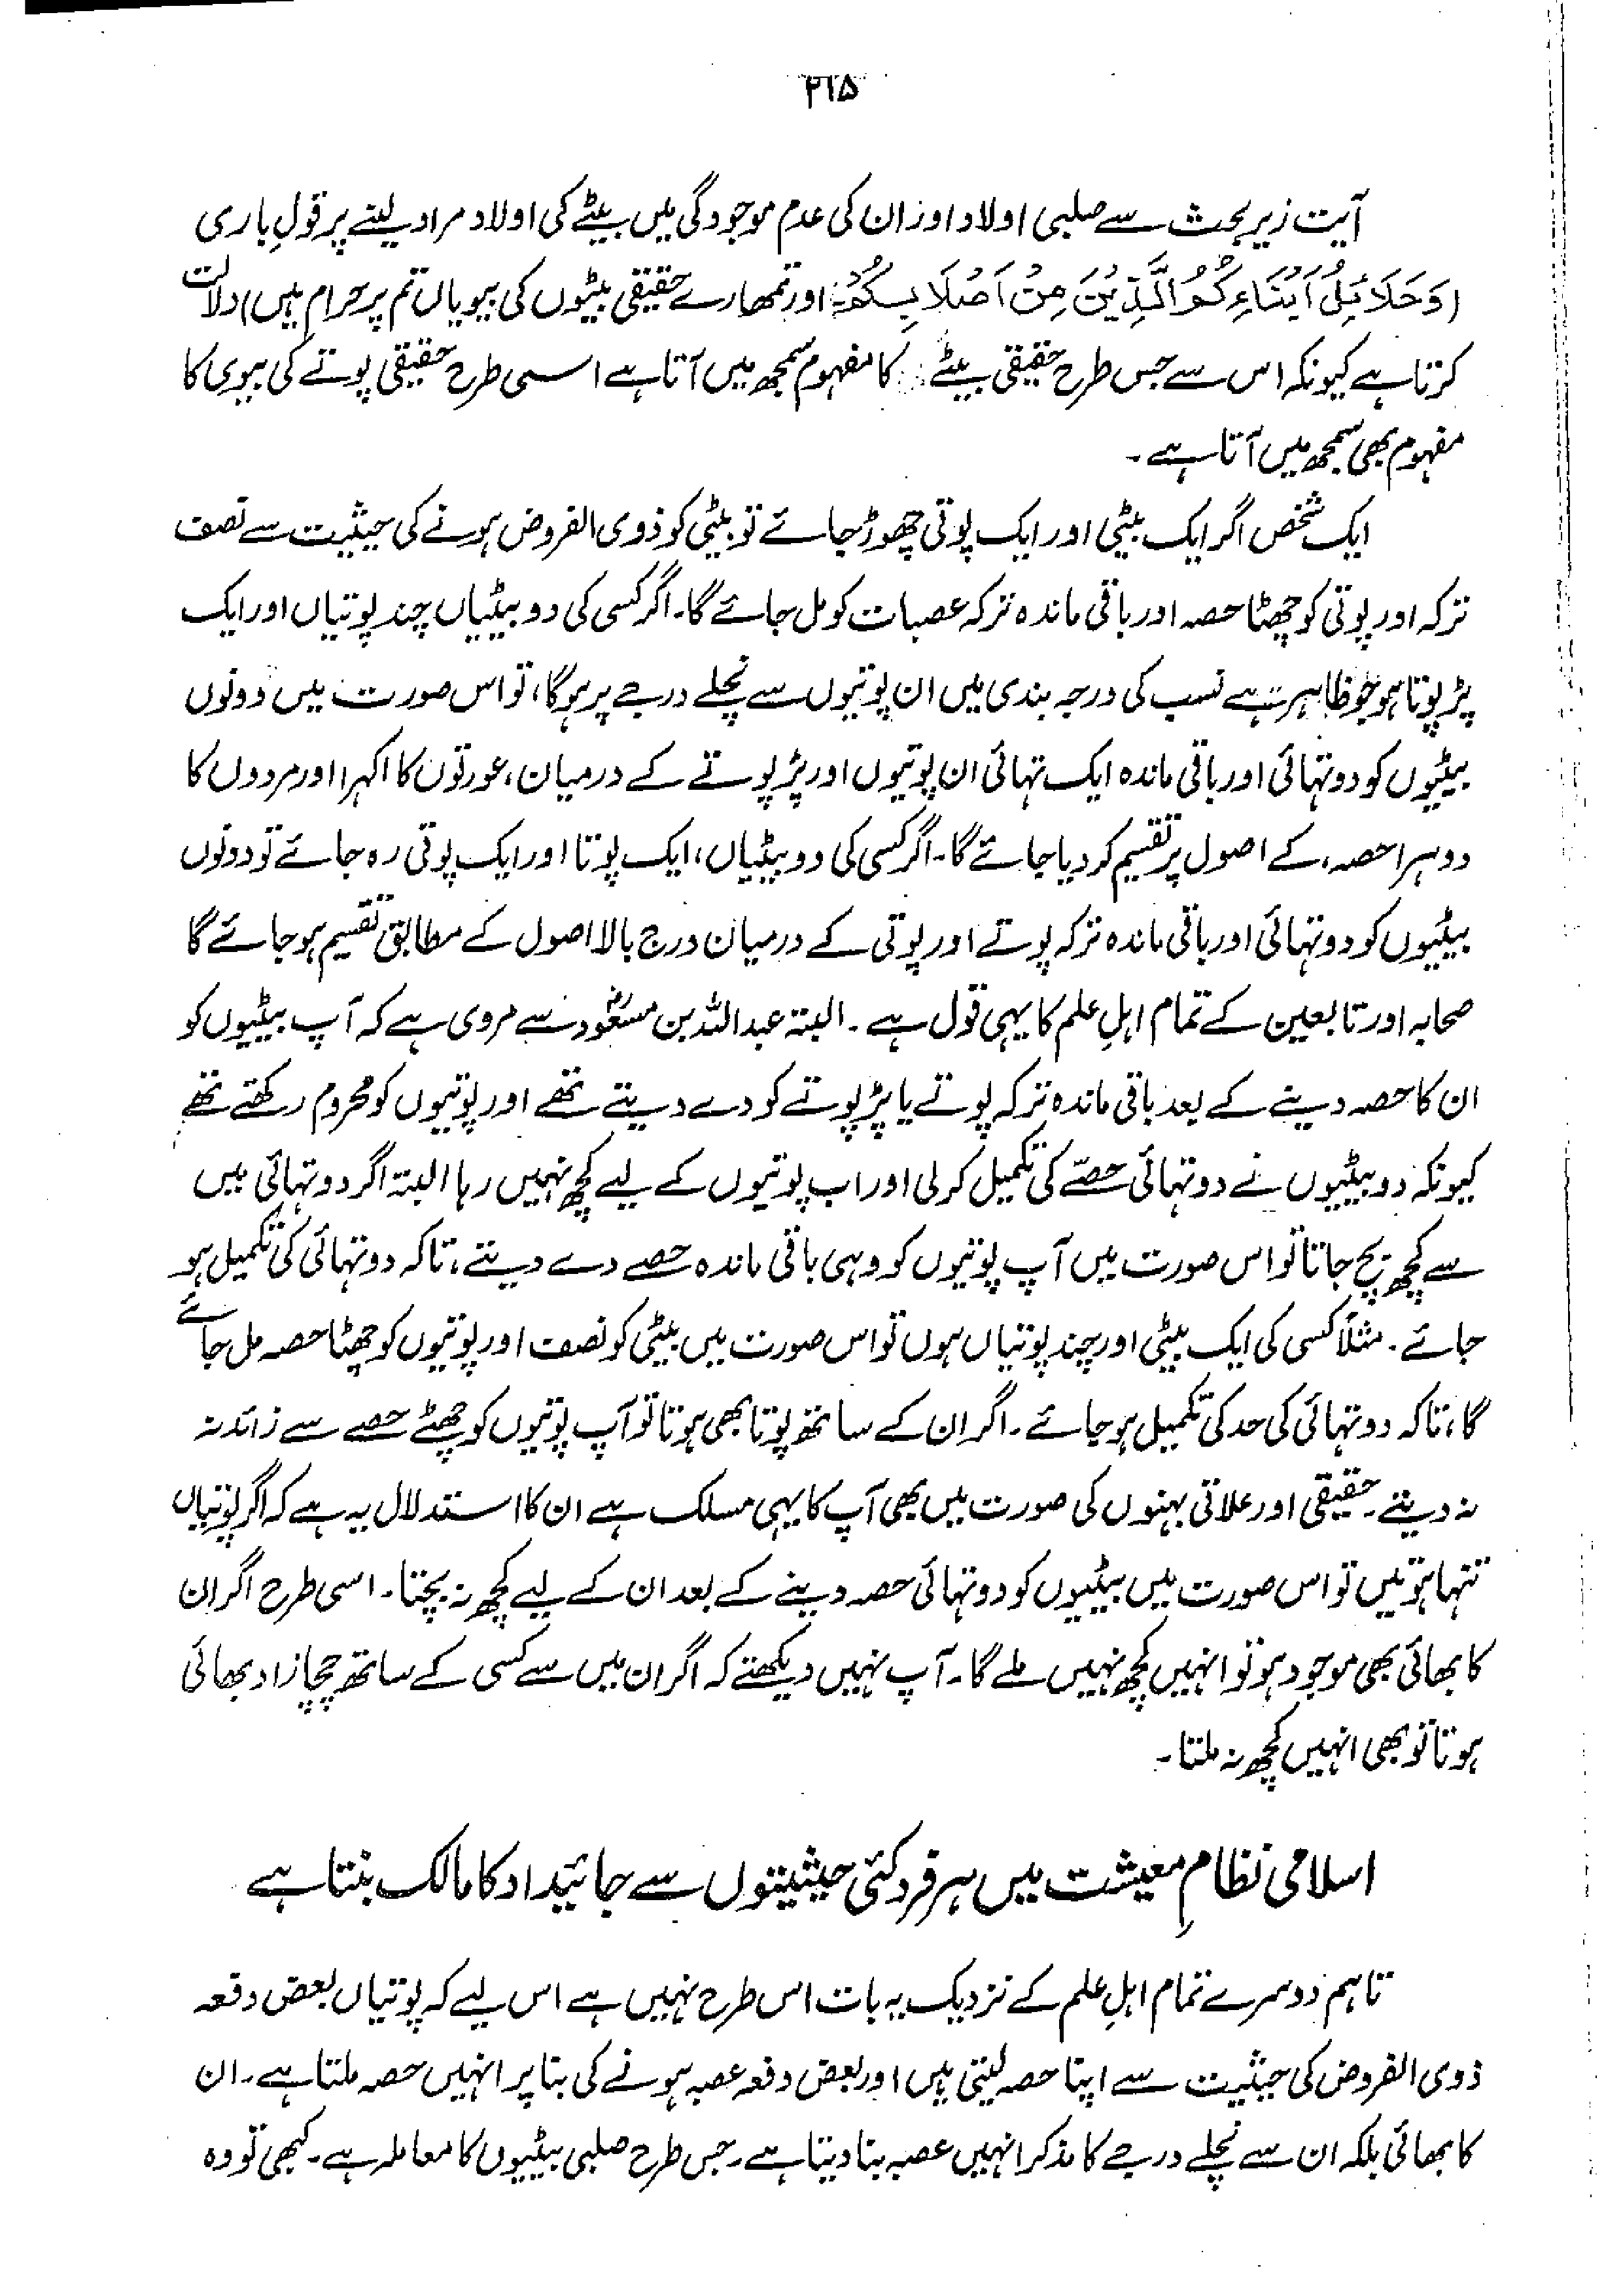 ۲۱۵
آیت زیر بحث سے صلبی اولاد اور ان کی عدم موجودگی میں بیٹے کی اولاد مراد لینے پر قولِ باری
(وَحَلَائِلُ اَبْنَاءِكُمُ الَّذِيْنَ مِنْ اَصْلَابِكُمْ اور تمھارے حقیقی بیٹوں کی بیویاں تم پر حرام ہیں) دلالت
کرتا ہے کیونکہ اس سے جس طرح حقیقی بیٹے کا مفہوم سمجھ میں آتا ہے اسی طرح حقیقی پوتے کی بیوی کا
مفہوم بھی سمجھ میں آتا ہے۔
ایک شخص اگر ایک بیٹی اور ایک پوتی چھوڑ جائے تو بیٹی کو ذوی الفروض ہونے کی حیثیت سے نصف
ترکہ اور پوتی کو چھٹا حصہ اور باقی ماندہ ترکہ عصبات کو مل جائے گا۔ اگر کسی کی دو بیٹیاں چند پوتیاں اور ایک
پڑپوتا ہو جو ظاہر ہے نسب کی درجہ بندی میں ان پوتیوں سے نچلے درجے پر ہوگا، تو اس صورت میں دونوں
بیٹیوں کو دو تہائی اور باقی ماندہ ایک تہائی ان پوتیوں اور پڑپوتے کے درمیان، عورتوں کا اکہرا اور مردوں کا
دوہرا حصہ، کے اصول پر تقسیم کر دیا جائے گا۔ اگر کسی کی دو بیٹیاں، ایک پوتا اور ایک پوتی رہ جائے تو دونوں
بیٹیوں کو دو تہائی اور باقی ماندہ ترکہ پوتے اور پوتی کے درمیان درج بالا اصول کے مطابق تقسیم ہو جائے گا
صحابہ اور تابعین کے تمام اہلِ علم کا یہی قول ہے۔ البتہ عبداللہ بن مسعودؓ سے مروی ہے کہ آپ بیٹیوں کو
ان کا حصہ دینے کے بعد باقی ماندہ ترکہ پوتے یا پڑپوتے کو دے دیتے تھے اور پوتیوں کو محروم رکھتے تھے
کیونکہ دو بیٹیوں نے دو تہائی حصّے کی تکمیل کر لی اور اب پوتیوں کے لیے کچھ نہیں رہا البتہ اگر دو تہائی میں
سے کچھ بچ جاتا تو اس صورت میں آپ پوتیوں کو وہی باقی ماندہ حصے دے دیتے، تاکہ دو تہائی کی تکمیل ہو
جائے۔ مثلاً کسی کی ایک بیٹی اور چند پوتیاں ہوں تو اس صورت میں بیٹی کو نصف اور پوتیوں کو چھٹا حصہ مل جائے
گا، تاکہ دو تہائی کی حد کی تکمیل ہو جائے۔ اگر ان کے ساتھ پوتا بھی ہوتا تو آپ پوتیوں کو چھٹے حصے سے زائد نہ
نہ دیتے۔ حقیقی اور علاتی بہنوں کی صورت میں بھی آپ کا یہی مسلک ہے ان کا استدلال یہ ہے کہ اگر پوتیاں
تنہا ہوتیں تو اس صورت میں بیٹیوں کو دو تہائی حصہ دینے کے بعد ان کے لیے کچھ نہ بچتا۔ اسی طرح اگر ان
کا بھائی بھی موجود ہو تو انہیں کچھ نہیں ملے گا۔ آپ نہیں دیکھتے کہ اگر ان میں سے کسی کے ساتھ چچازاد بھائی
ہوتا تو بھی انہیں کچھ نہ ملتا۔
اسلامی نظامِ معیشت میں ہر فرد کئی حیثیتوں سے جائیداد کا مالک بنتا ہے
تاہم دوسرے تمام اہلِ علم کے نزدیک یہ بات اس طرح نہیں ہے اس لیے کہ پوتیاں بعض دفعہ
ذوی الفروض کی حیثیت سے اپنا حصہ لیتی ہیں اور بعض دفعہ عصبہ ہونے کی بنا پر انہیں حصہ ملتا ہے۔ ان
کا بھائی بلکہ ان سے نچلے درجے کا مذکر انہیں عصبہ بنا دیتا ہے۔ جس طرح صلبی بیٹیوں کا معاملہ ہے۔ کبھی تو وہ